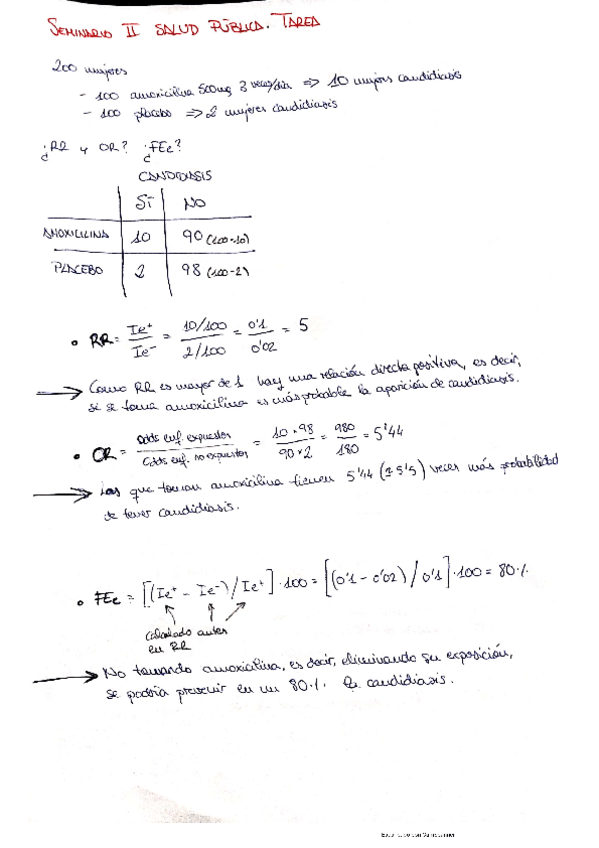 SEMINARIO II SALUD PÚBLICA. TAREA
200 mujeres
- 100 amoxicilina 500mg 3 veces/día ⇒ 10 mujeres candidiasis
- 100 placebo ⇒ 2 mujeres candidiasis
¿RR y OR? ¿FEe?
CANDIDIASIS
SÍ NO
AMOXICILINA 10 90 (100-10)
PLACEBO 2 98 (100-2)
• RR = Ie+ / Ie- = 10/100 / 2/100 = 0'1 / 0'02 = 5
→ Como RR es mayor de 1 hay una relación directa positiva, es decir,
si se toma amoxicilina es más probable la aparición de candidiasis.
• OR = Odds enf. expuestos / Odds enf. no expuestos = 10 × 98 / 90 × 2 = 980 / 180 = 5'44
→ Las que toman amoxicilina tienen 5'44 (≃ 5'5) veces más probabilidad
de tener candidiasis.
• FEe = [(Ie+ - Ie-) / Ie+] · 100 = [(0'1 - 0'02) / 0'1] · 100 = 80%
calculado antes
en RR
→ No tomando amoxicilina, es decir, eliminando su exposición,
se podría prevenir en un 80% la candidiasis.